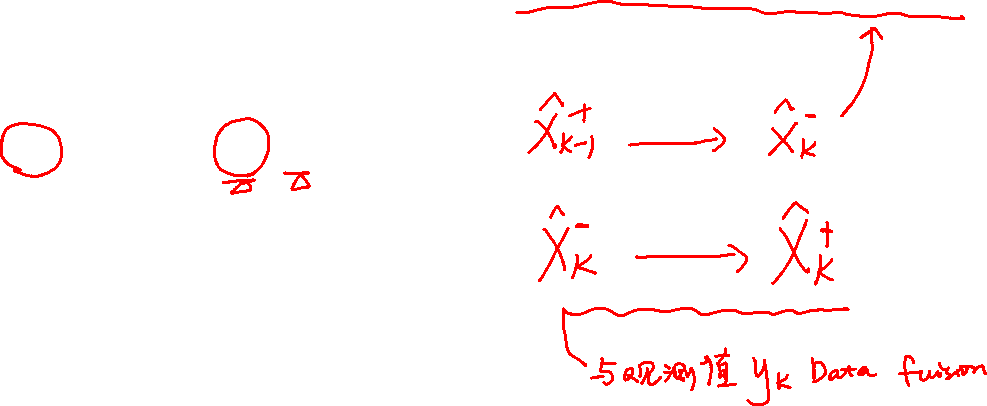 X̂⁺ₖ₋₁ → X̂⁻ₖ
X̂⁻ₖ → X̂⁺ₖ
与观测值 yₖ Data fuision